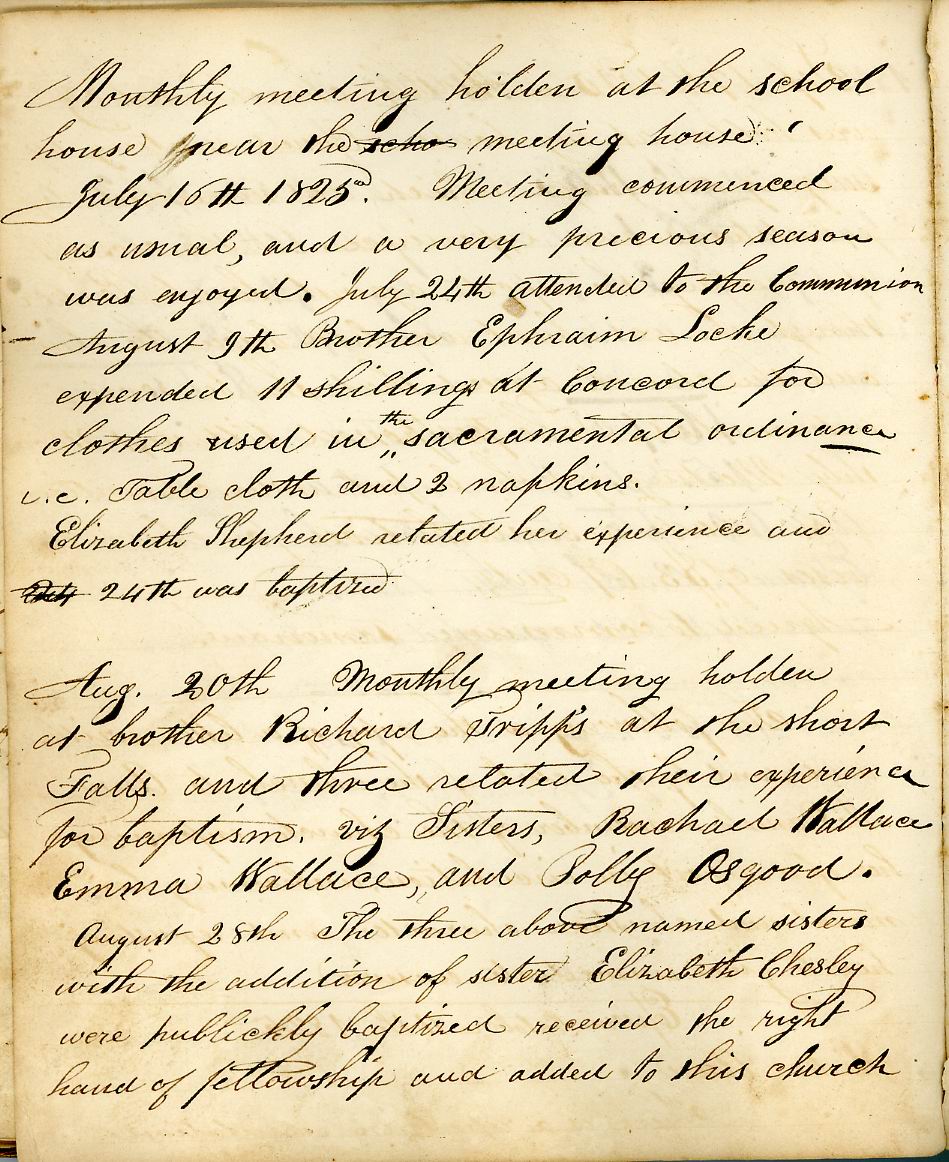 Monthly meeting holden at the school
house near the scho meeting house
July 16th 1825. Meeting commenced
as usual, and a very precious season
was enjoyed. July 24th attended to the Communion
August 9th Brother Ephraim Locke
expended 11 shillings at Concord for
clothes used in the sacramental ordinance
i.e. Table cloth and 2 napkins.
Elizabeth Shepherd related her experience and
24th was baptized
Aug. 20th Monthly meeting holden
at brother Richard Tripp's at the short
Falls. and three related their experience
for baptism. viz Sisters, Rachael Wallace
Emma Wallace, and Polly Osgood.
August 28th The three above named sisters
with the addition of sister Elizabeth Chesley
were publickly baptized received the right
hand of fellowship and added to this church